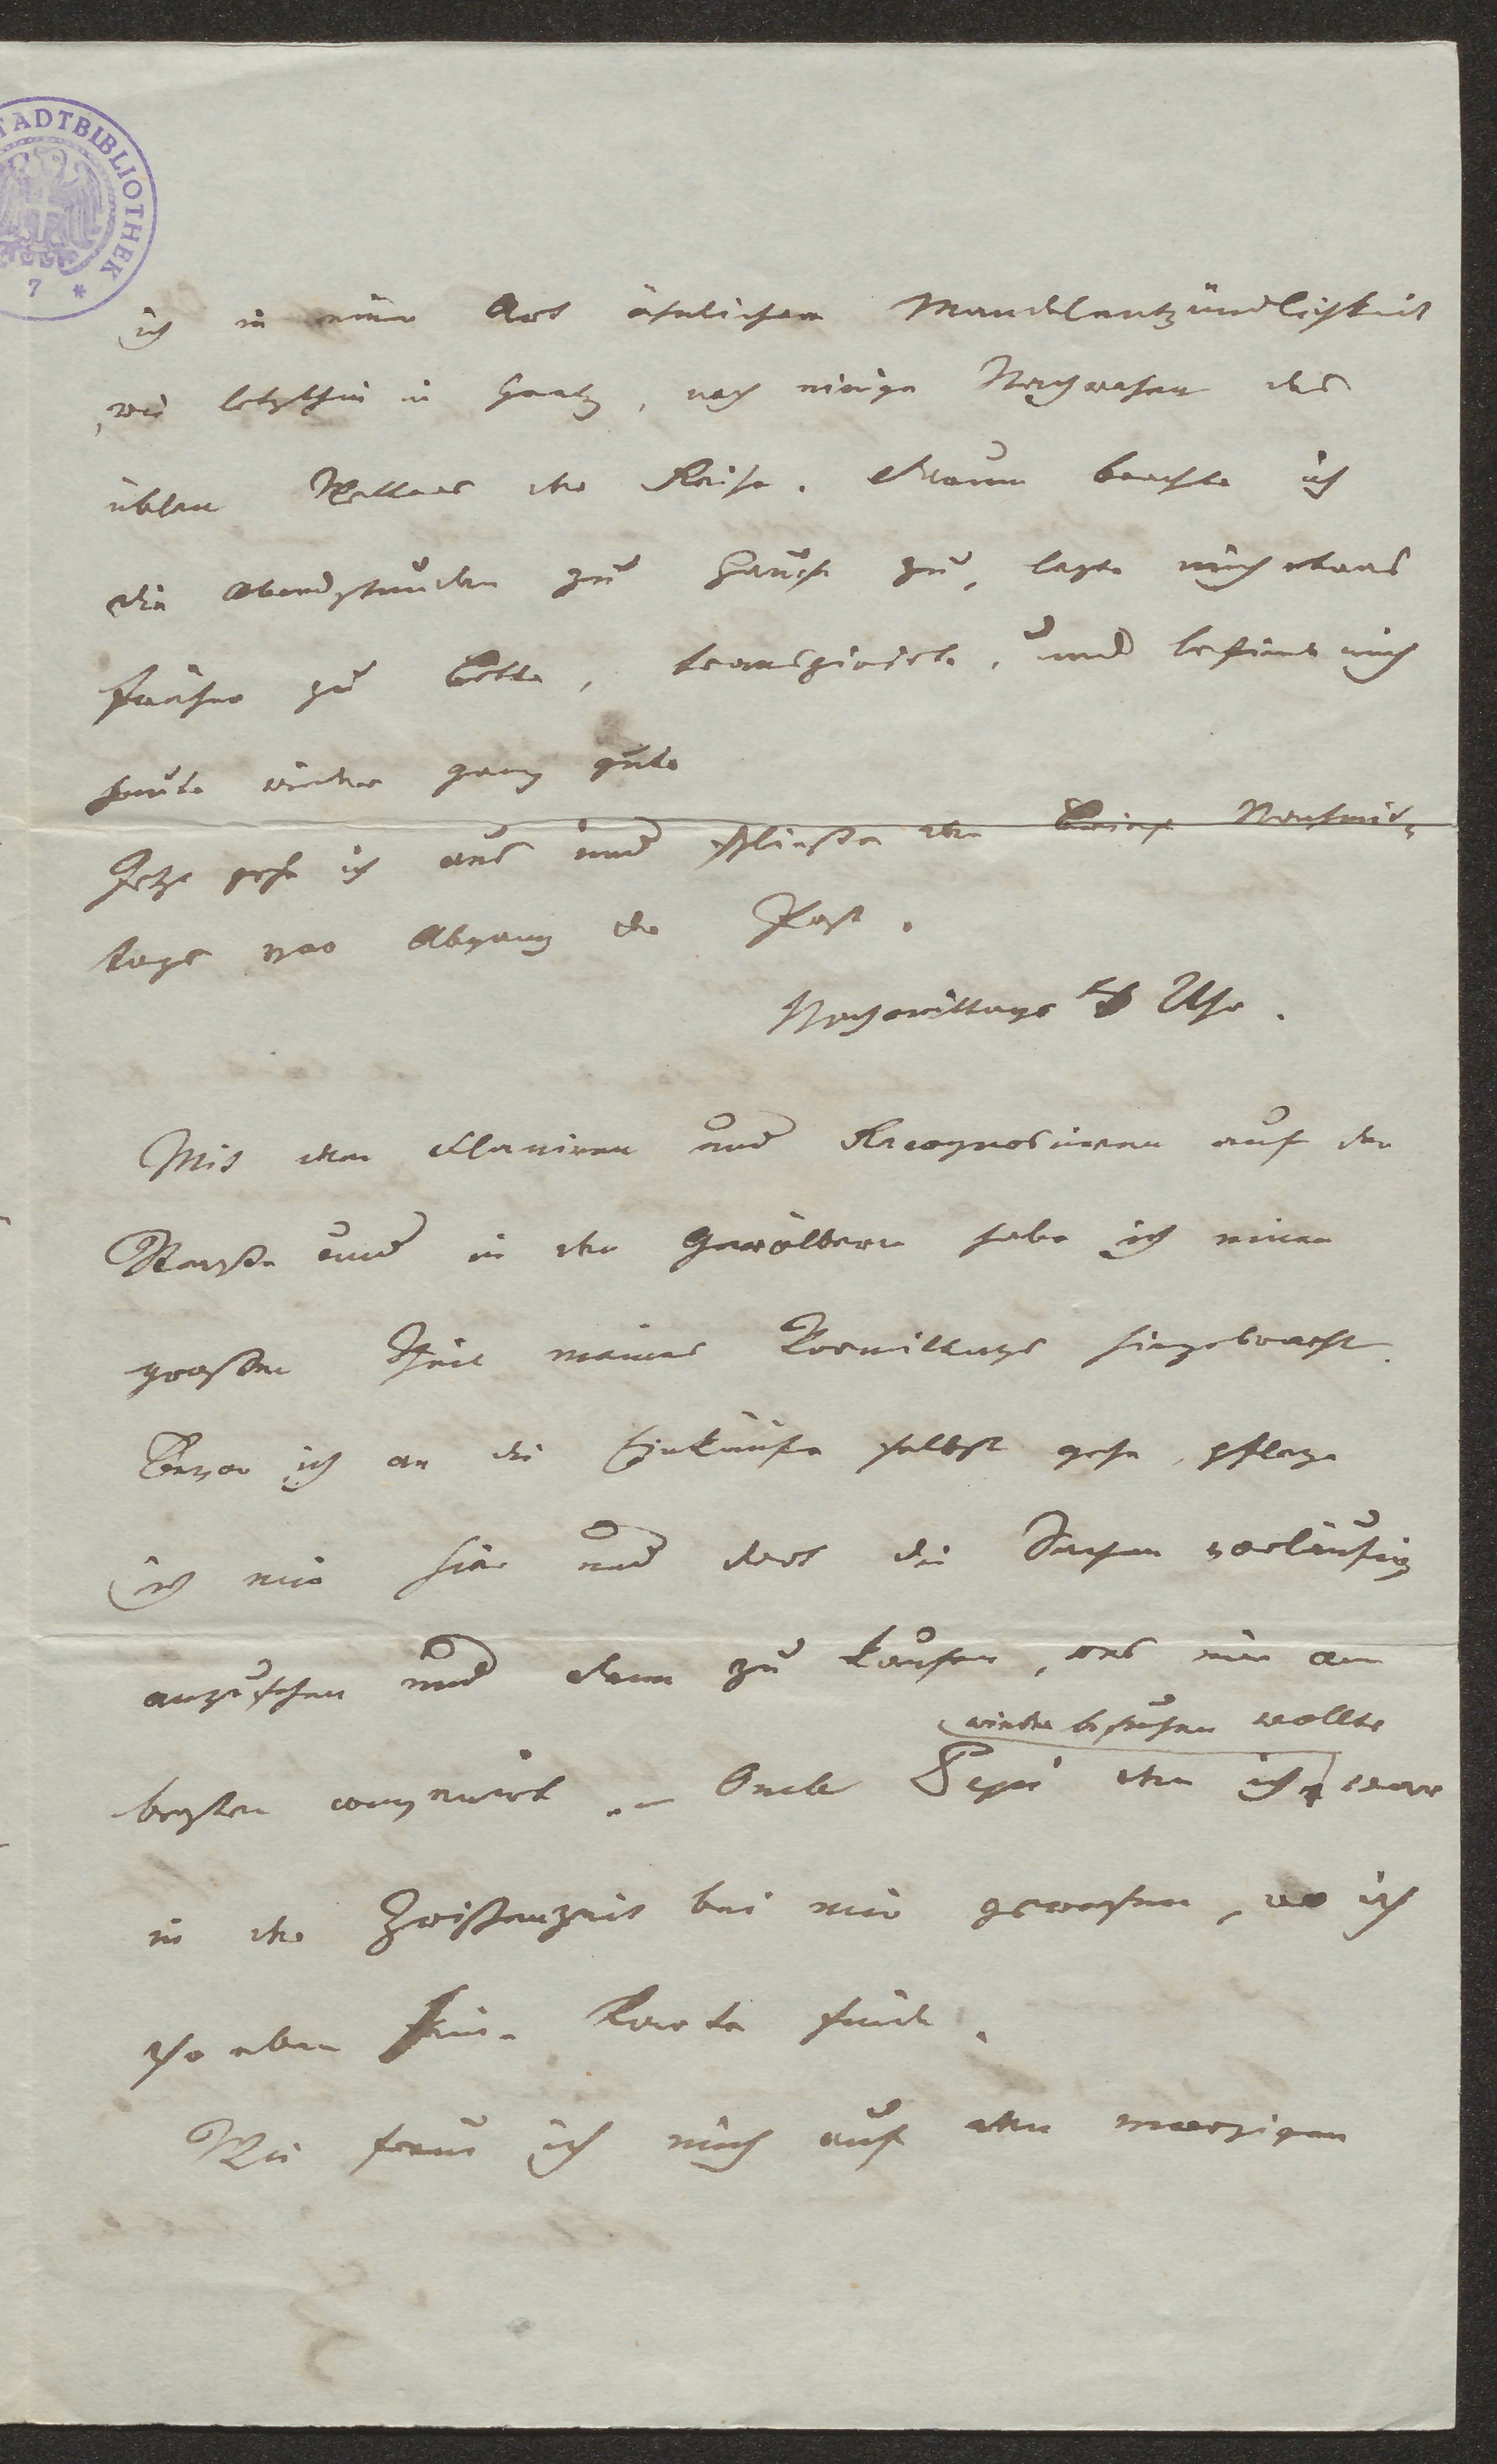 STADTBIBLIOTHEK
7 *
ich in einer Art ähnlichen Mandelentzündlichkeit
wie letzthin in Graetz, noch einige Nachwehen des
üblen Wetters der Reise. Darum brachte ich
die Abendstunden zu Hause zu, legte mich etwas
früher zu Bette, transpirirte, und befinde mich
heute wieder ganz gut.
Jetzt gehe ich aus und schließe den Brief Nachmit-
tags vor Abgang der Post.
Nachmittags Uhr.
Mit dem Flaniren und Recognosciren auf der
Straße und in den Gewölbern habe ich einen
großen Theil meines Vormittags hingebracht.
Bevor ich an die Einkäufe selbst gehe, pflege
ich mir hier und dort die Sachen vorläufig
anzusehen und dann zu kaufen, was mir am
wieder besuchen wollte
besten convenirt. – Onkle Pepi den ich war
in der Zwischenzeit bei mir gewesen, wo ich
so eben seine Karte finde.
Wie freue ich mich auf den morgigen